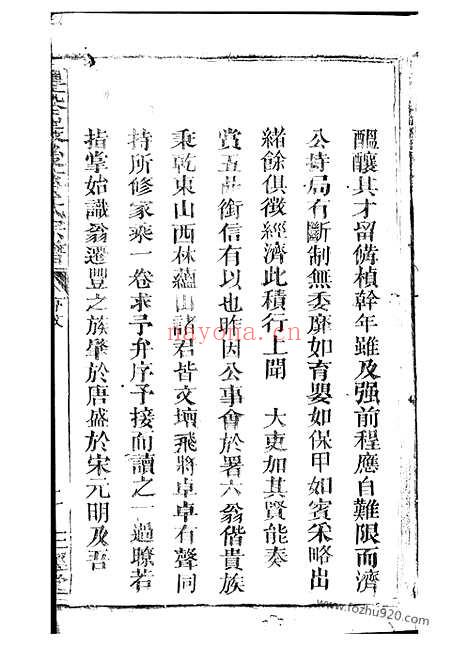 醞釀其才留備楨幹年雖及强前程應自難限而濟
公持局有斷制無委靡如育嬰如保甲如賓采略出
緒餘俱徵經濟此積行上聞 大吏加其賢能奏
賞五品銜信有以也昨因公事會於署六翁偕貴族
秉乾東山西林蘊山諸君皆文壇飛將卓卓有聲同
持所修家乘一卷求予弁序予接而讀之一過瞭若
指掌始識翁遷豐之族肇於唐盛於宋元明及吾
nayona.cn
www.fozhu920.com